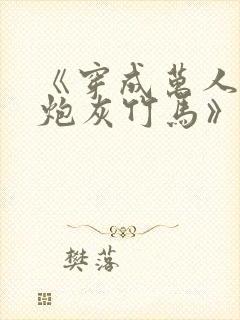 《穿成萬人
炮灰竹馬》
樊落